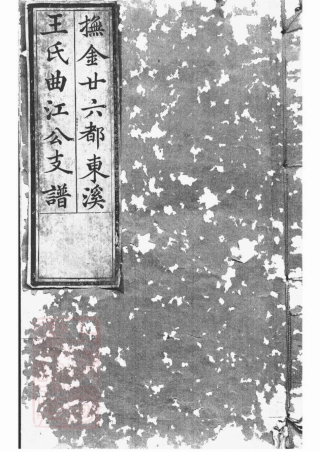 撫金廿六都東溪
王氏曲江公支譜